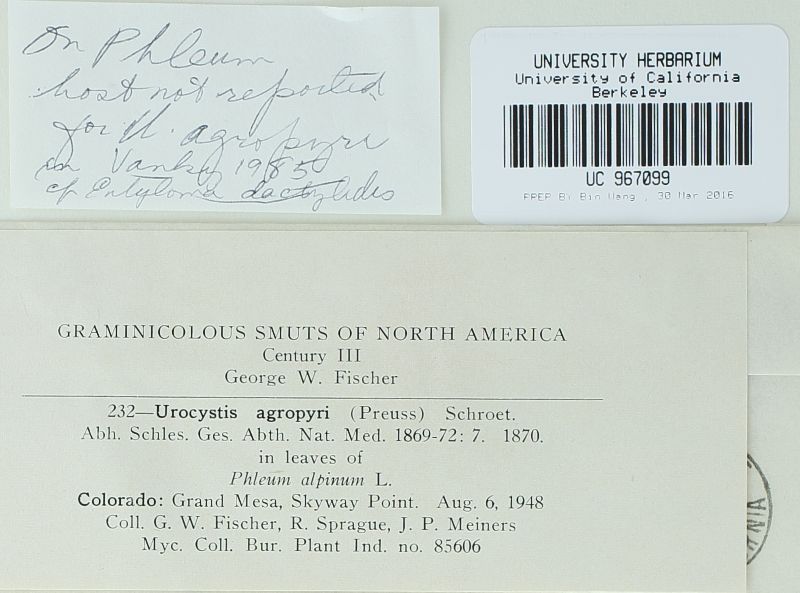 On Phleum
host not reported
for U. agropyri
in Vanky 1985
cf Entyloma dactylidis
UNIVERSITY HERBARIUM
University of California
Berkeley
UC 967099
PREP BY Bin Wang , 30 Mar 2016
GRAMINICOLOUS SMUTS OF NORTH AMERICA
Century III
George W. Fischer
232—Urocystis agropyri (Preuss) Schroet.
Abh. Schles. Ges. Abth. Nat. Med. 1869-72: 7. 1870.
in leaves of
Phleum alpinum L.
Colorado: Grand Mesa, Skyway Point. Aug. 6, 1948
Coll. G. W. Fischer, R. Sprague, J. P. Meiners
Myc. Coll. Bur. Plant Ind. no. 85606